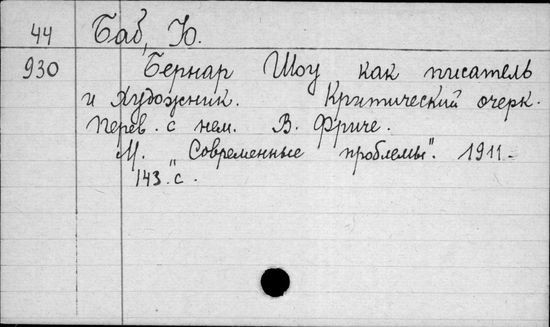 44 Баб, Ю.
930 Бернар Шоу как писатель
и художник. Критический очерк.
Перев. с нем. В. Фриче.
М. „Современные проблемы". 1911.
143 с.